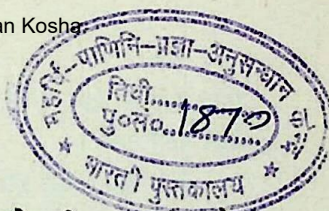 an Kosha
महर्षि-पाणिनि-प्रज्ञा-अनुसन्धान
तिथी..........
पु०सं०.1870
* भारती पुस्तकालय *